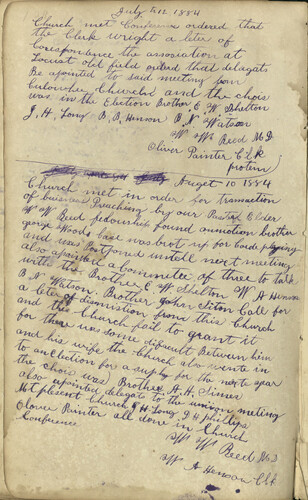 July 5 12. 1884
Church met Conference ordered that
the Clerk wright a liter of
Corespondence the association at
Locust old field orderd that delagats
Be apointed to said meeting from
Cullowhee Church and the chois
was in the Election Brother E W Shelton
J. H. Long B, B, Henson B. N. Watson
W W Reed M D
Oliver Painter Clk
protem
Augest 10 1884
Church met in order for transaction
of buisness Preaching by our Pastor Elder
W W Reed fedoinship found anmotion brother
george Woods Case was brot up for Carde playing
and was postponed untell next meeting
also apointed a commetee of three to talk
with the Brother E W Shelton W A Henson
B N Watson. Brother John Siton Call for
a leter of dismistion from this Church
and the Church fail to grant it
for there was some dificuelt Between him
and his wife the Church also wente in
to an Election for a suply for the nexte year
the chois was Brother A. H. Simes
also apointed delegate to the union meting
Mt plesent Church J H Long J H phillips
Olover Painter all done in Church
Conferance
W W Reed M. D
W A Henson Clk